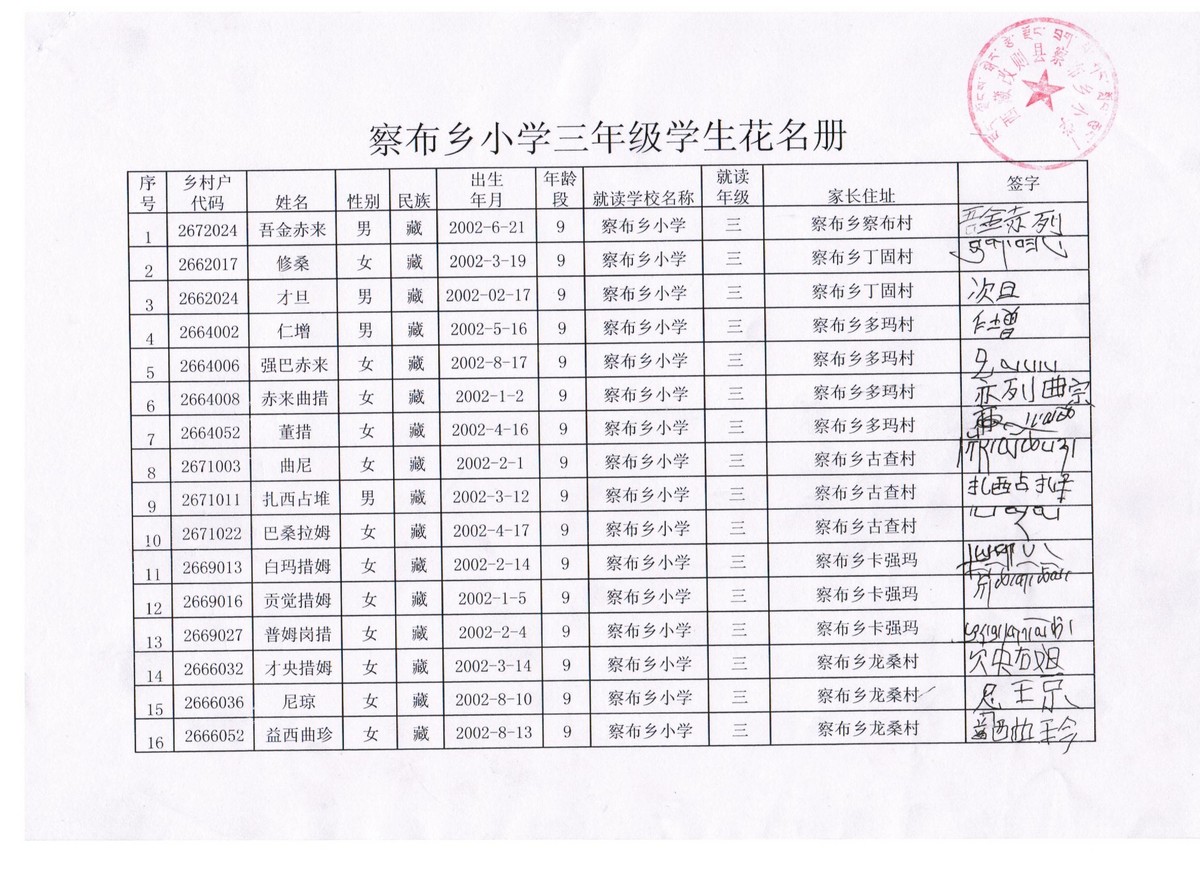 察布乡小学三年级学生花名册
序号 乡村户代码 姓名 性别 民族 出生年月 年龄段 就读学校名称 就读年级 家长住址 签字
1 2672024 吾金赤来 男 藏 2002-6-21 9 察布乡小学 三 察布乡察布村 吾金赤列
2 2662017 修桑 女 藏 2002-3-19 9 察布乡小学 三 察布乡丁固村
3 2662024 才旦 男 藏 2002-02-17 9 察布乡小学 三 察布乡丁固村 次旦
4 2664002 仁增 男 藏 2002-5-16 9 察布乡小学 三 察布乡多玛村 仁增
5 2664006 强巴赤来 女 藏 2002-8-17 9 察布乡小学 三 察布乡多玛村
6 2664008 赤来曲措 女 藏 2002-1-2 9 察布乡小学 三 察布乡多玛村 赤列曲宗
7 2664052 董措 女 藏 2002-4-16 9 察布乡小学 三 察布乡多玛村
8 2671003 曲尼 女 藏 2002-2-1 9 察布乡小学 三 察布乡古查村
9 2671011 扎西占堆 男 藏 2002-3-12 9 察布乡小学 三 察布乡古查村 扎西占
10 2671022 巴桑拉姆 女 藏 2002-4-17 9 察布乡小学 三 察布乡古查村
11 2669013 白玛措姆 女 藏 2002-2-14 9 察布乡小学 三 察布乡卡强玛
12 2669016 贡觉措姆 女 藏 2002-1-5 9 察布乡小学 三 察布乡卡强玛
13 2669027 普姆岗措 女 藏 2002-2-4 9 察布乡小学 三 察布乡卡强玛
14 2666032 才央措姆 女 藏 2002-3-14 9 察布乡小学 三 察布乡龙桑村
15 2666036 尼琼 女 藏 2002-8-10 9 察布乡小学 三 察布乡龙桑村
16 2666052 益西曲珍 女 藏 2002-8-13 9 察布乡小学 三 察布乡龙桑村